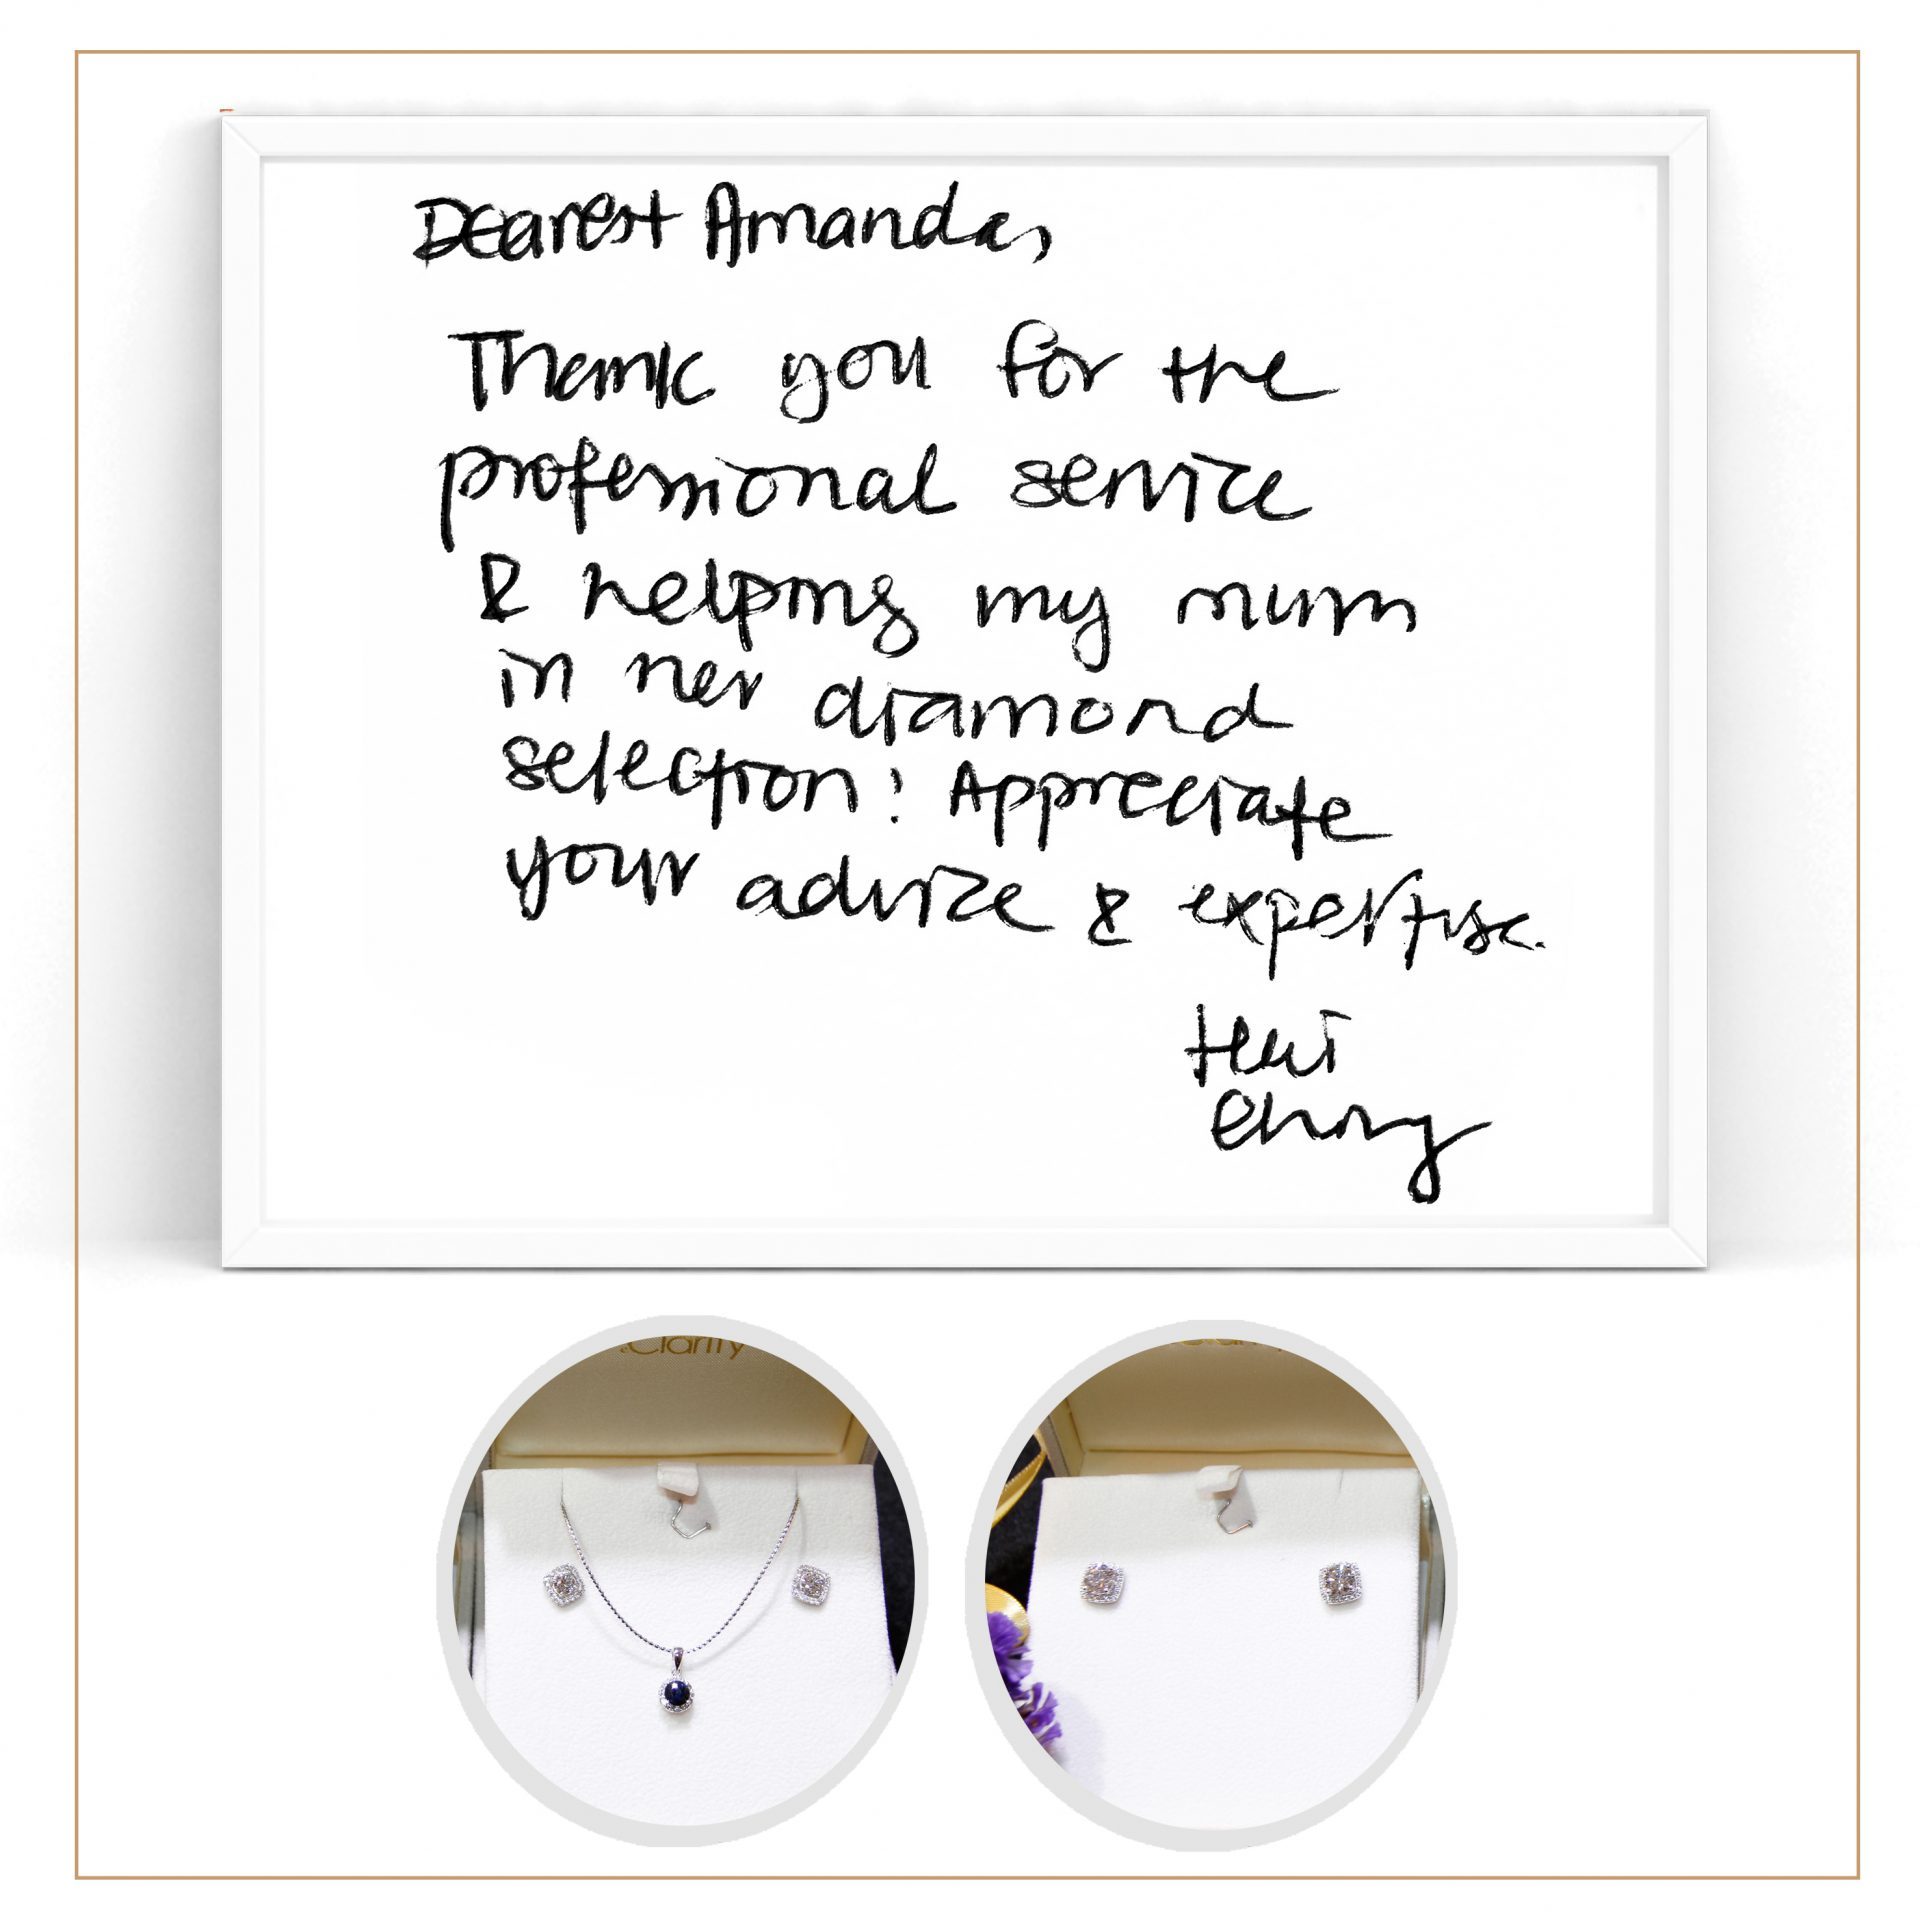 Dearest Amanda,
Thank you for the
professional service
& helping my mum
in her diamond
selection! Appreciate
your advice & expertise.
Clarity